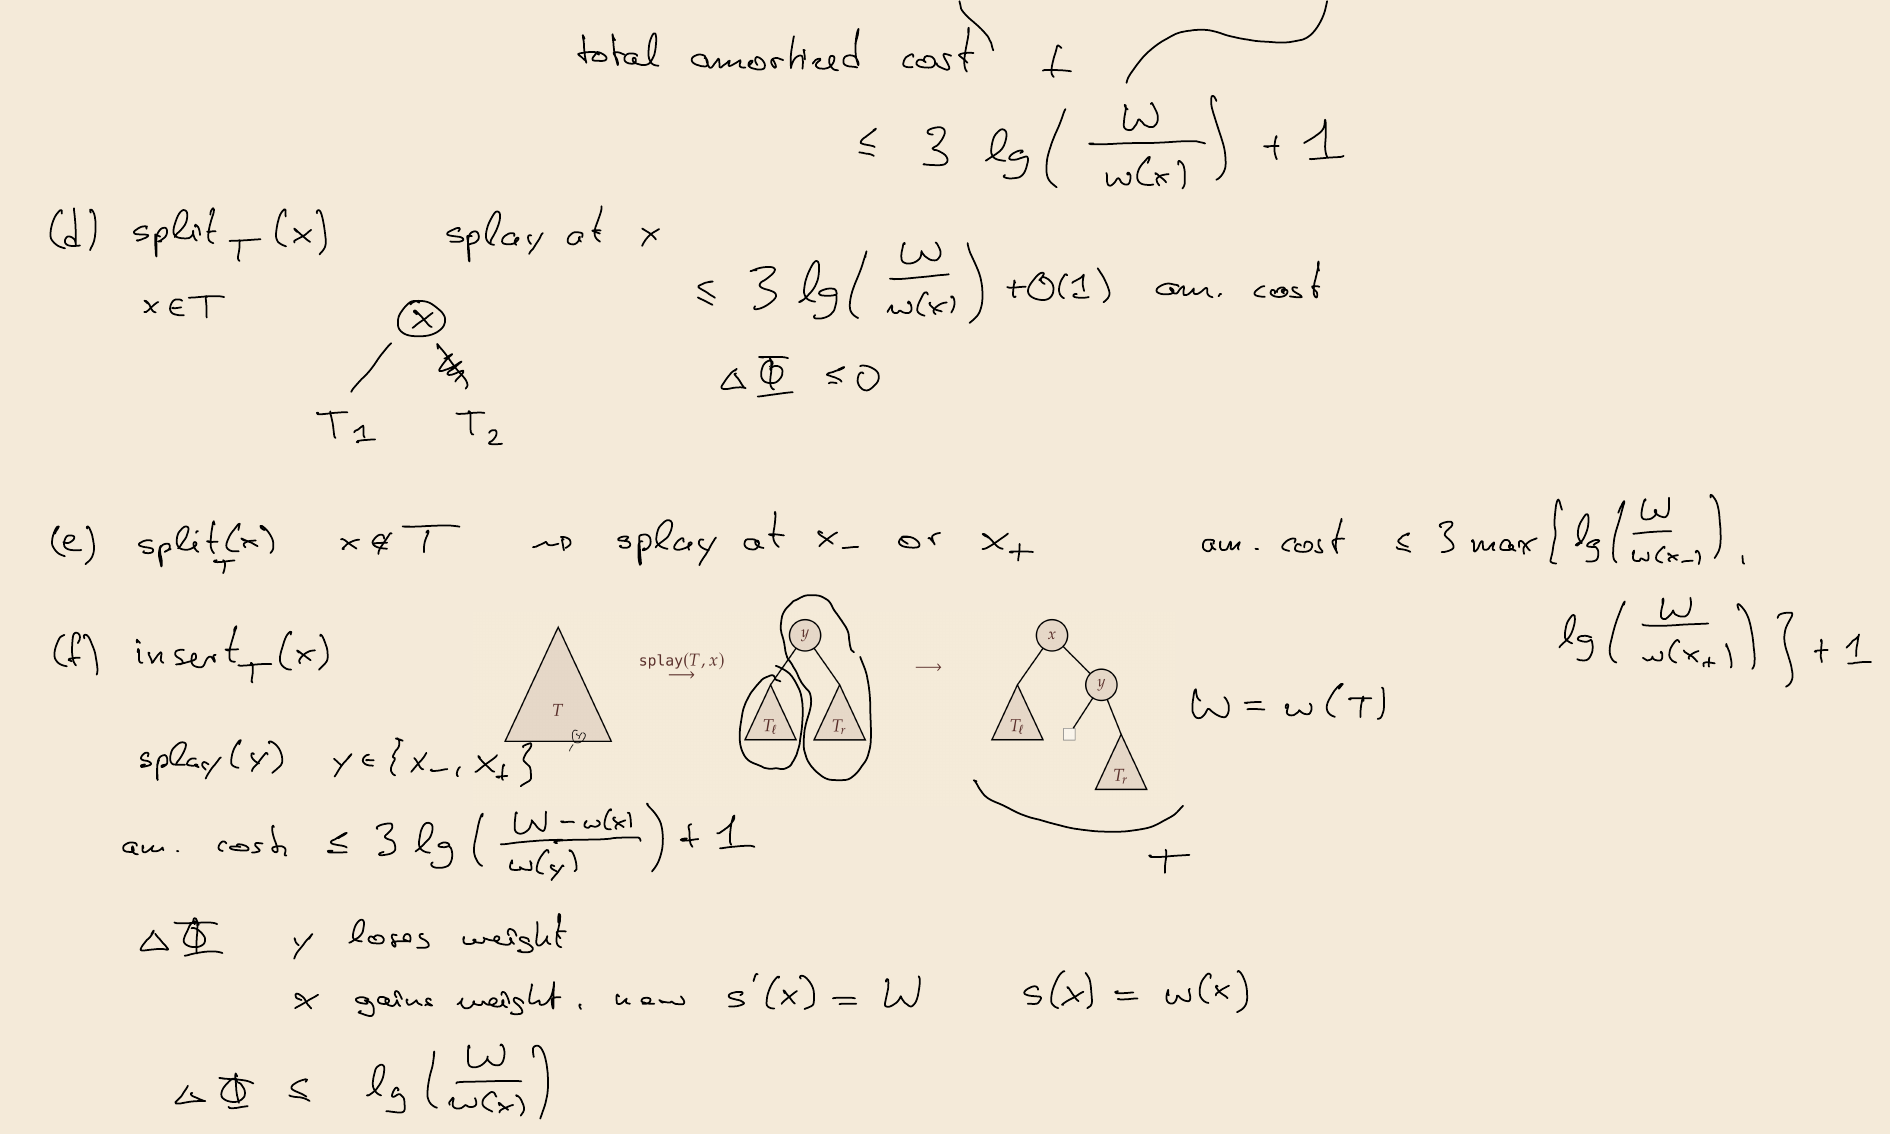 total amortized cost I
≤ 3 lg( W / w(x) ) + 1
(d) split_T(x) splay at x
x ∈ T
≤ 3 lg( W / w(x) ) + O(1) am. cost
x
ΔΦ ≤ 0
T1 T2
(e) split_T(x) x ∉ T ⇝ splay at x_- or x_+ am. cost ≤ 3 max{ lg( W / w(x_-) ),
lg( W / w(x_+) ) } + 1
(f) insert_T(x)
T
splay(T, x)
→
y
Tℓ Tr
→
x
y
Tℓ
Tr
W = w(T)
splay(y) y ∈ {x_-, x_+}
T
am. cost ≤ 3 lg( W - w(x) / w(y) ) + 1
ΔΦ y loses weight
x gains weight. now s'(x) = W s(x) = w(x)
ΔΦ ≤ lg( W / w(x) )